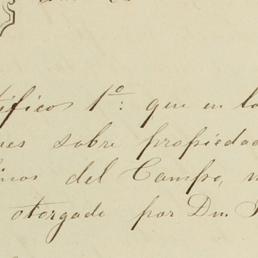 tificos 1º: que en lo
nes sobre propiedad
inos del Campo,
otorgado por Dn.